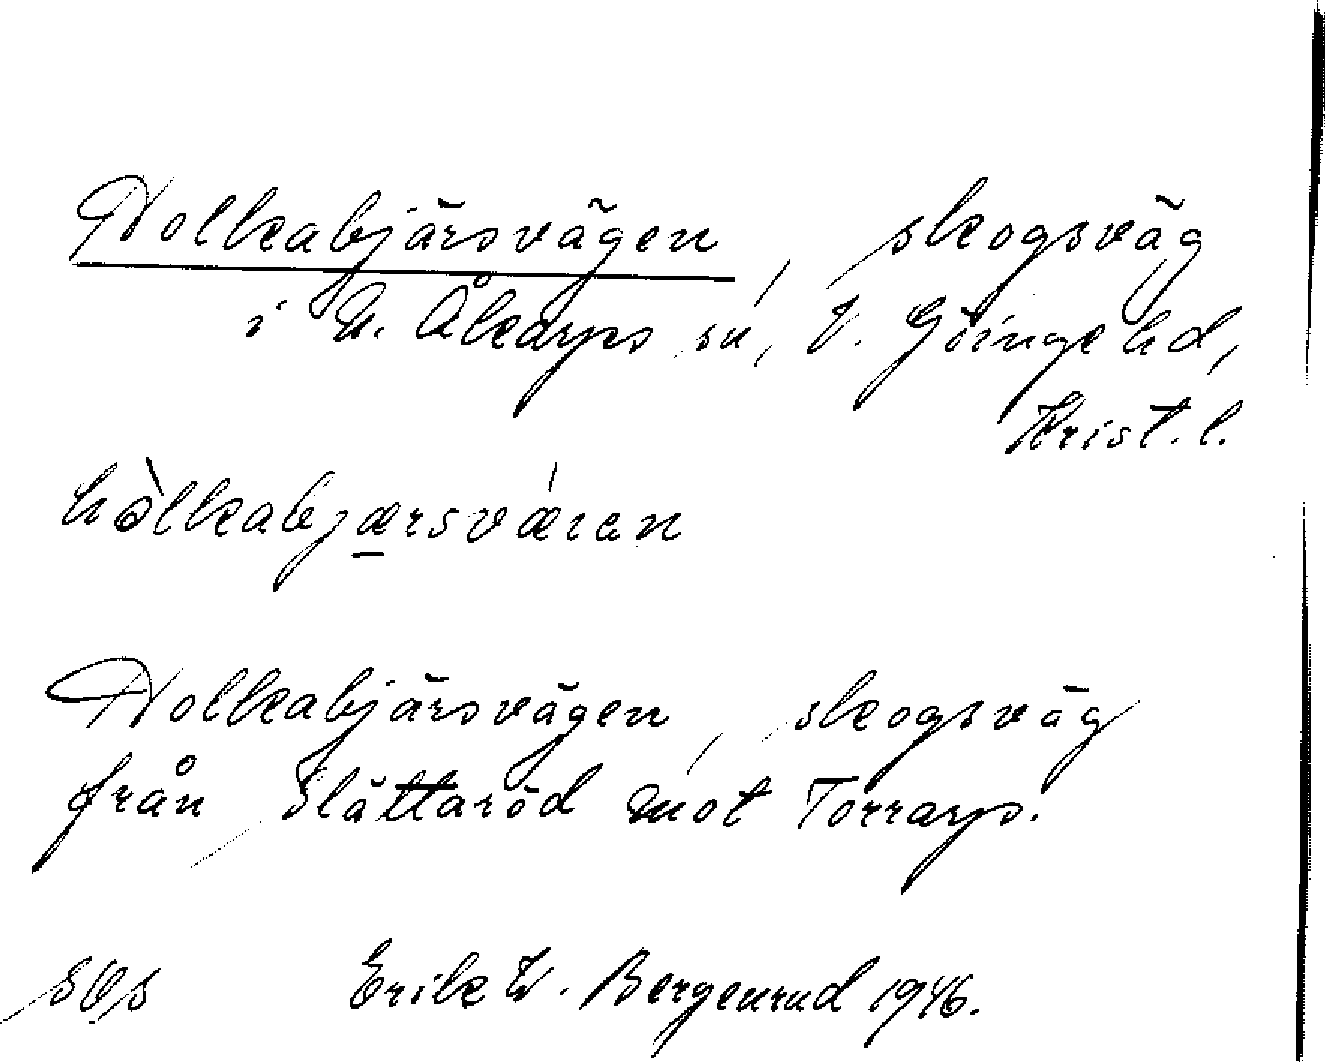 Holkabjärsvägen, skogsväg
i N. Åkarps sn, V. Göinge hd,
Krist. l.
hòlkabjærsvǽran
Holkabjärsvägen, skogsväg
från Slättaröd mot Torrarp.
Erik W. Bergenrud 1946.